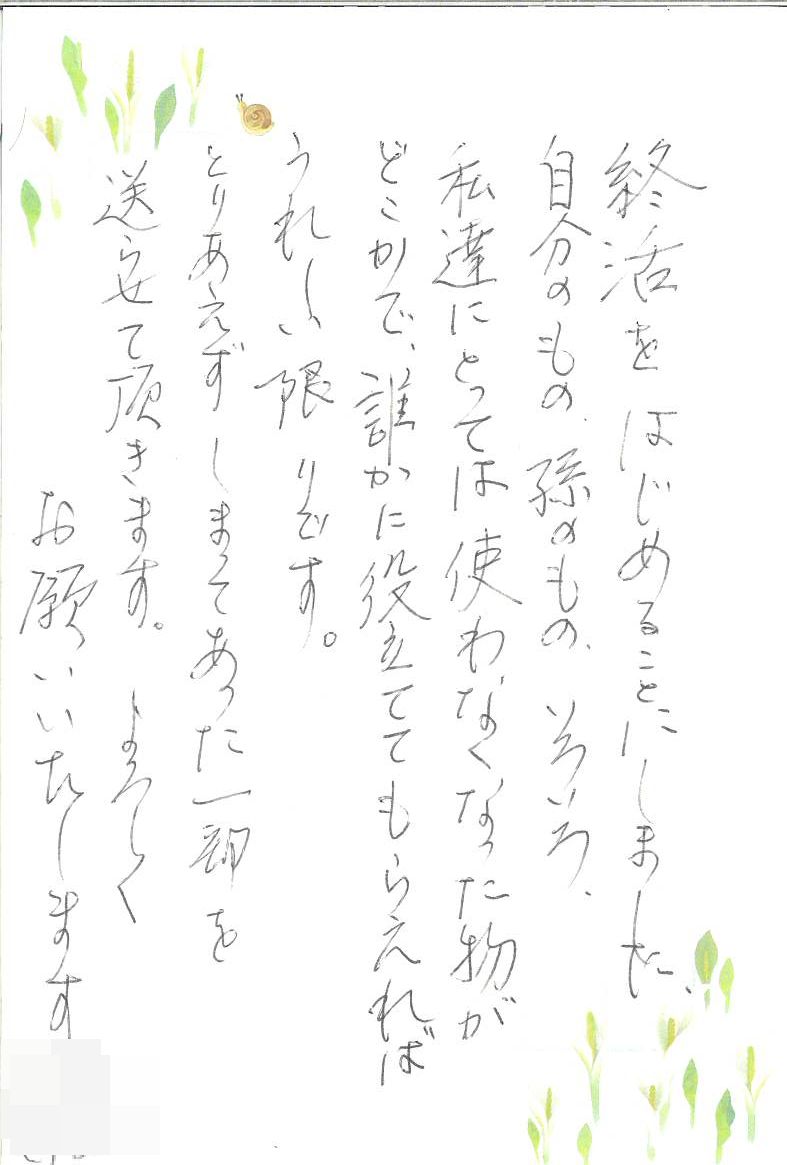 終活をはじめることにしました、
自分のもの、孫のもの、いろいろ、
私達にとっては使わなくなった物が
どこかで、誰かに役立ててもらえれば
うれしい限りです。
とりあえずしまってあった一部を
送らせて頂きます。よろしく
お願いいたします